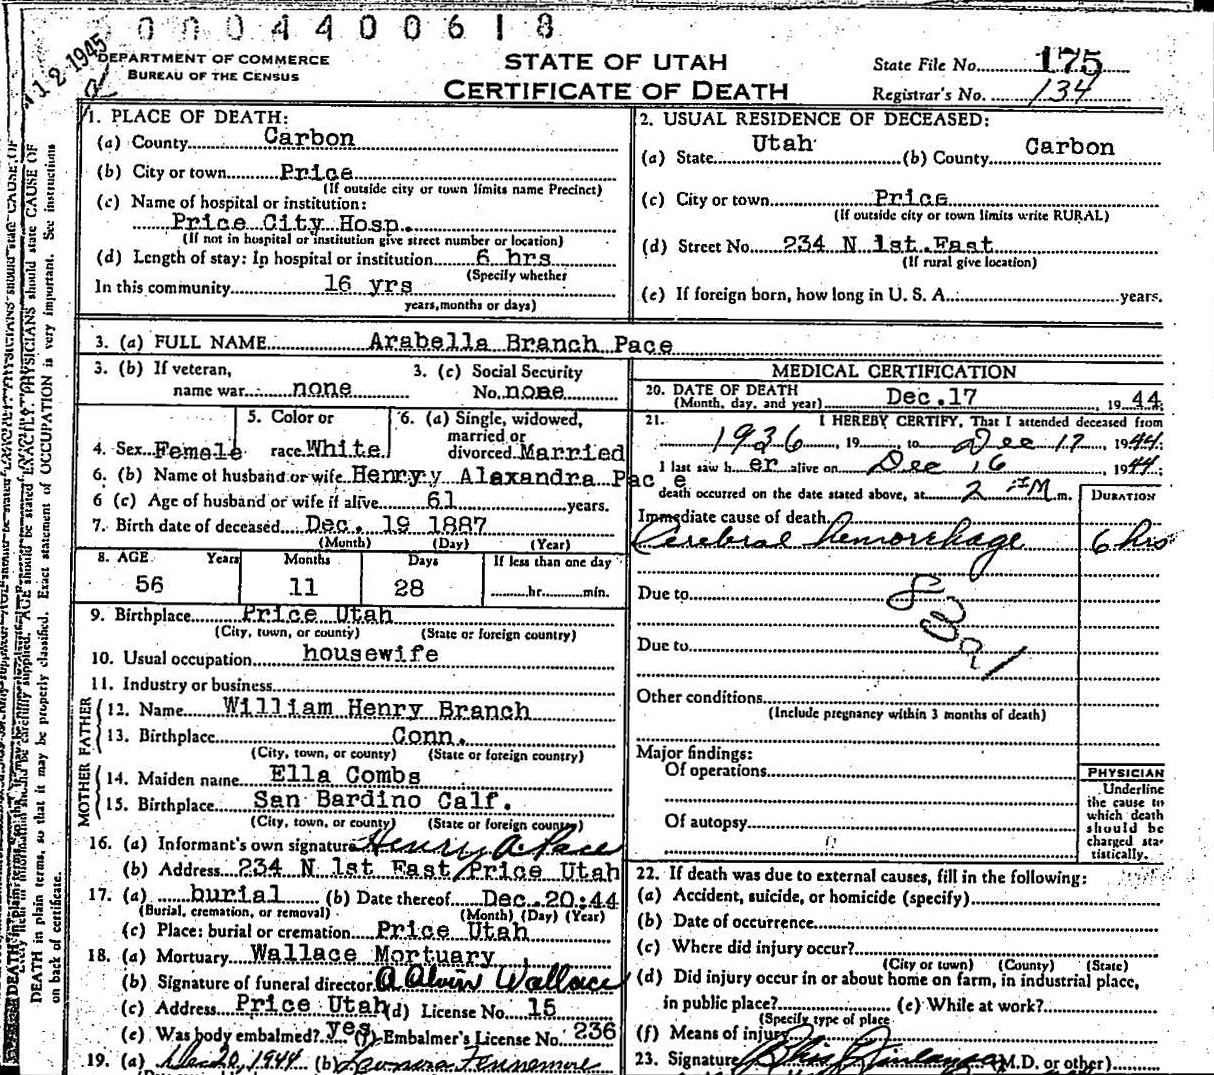 0004400618
12 1945
DEPARTMENT OF COMMERCE
BUREAU OF THE CENSUS
STATE OF UTAH
CERTIFICATE OF DEATH
State File No. 175
Registrar's No. 134
1. PLACE OF DEATH:
(a) County Carbon
(b) City or town Price
(If outside city or town limits name Precinct)
(c) Name of hospital or institution:
Price City Hosp.
(If not in hospital or institution give street number or location)
(d) Length of stay: In hospital or institution 6 hrs
(Specify whether
In this community 16 yrs
years, months or days)
2. USUAL RESIDENCE OF DECEASED:
(a) State Utah (b) County Carbon
(c) City or town Price
(If outside city or town limits write RURAL)
(d) Street No. 234 N 1st East
(If rural give location)
(e) If foreign born, how long in U. S. A. years.
3. (a) FULL NAME Arabella Branch Pace
3. (b) If veteran,
name war none
3. (c) Social Security
No. none
4. Sex Femele
5. Color or
race White
6. (a) Single, widowed,
married or
divorced Married
6. (b) Name of husband or wife Henryy Alexandra Pac e
6 (c) Age of husband or wife if alive 61 years.
7. Birth date of deceased Dec. 19 1887
(Month) (Day) (Year)
8. AGE Years Months Days If less than one day
56 11 28 hr. min.
9. Birthplace Price Utah
(City, town, or county) (State or foreign country)
10. Usual occupation housewife
11. Industry or business
FATHER
12. Name William Henry Branch
13. Birthplace Conn.
(City, town, or county) (State or foreign country)
MOTHER
14. Maiden name Ella Combs
15. Birthplace San Bardino Calf.
(City, town, or county) (State or foreign country)
16. (a) Informant's own signature Henry A. Pace
(b) Address 234 N 1st East Price Utah
17. (a) burial (b) Date thereof Dec. 20:44
(Burial, cremation, or removal) (Month) (Day) (Year)
(c) Place: burial or cremation Price Utah
18. (a) Mortuary Wallace Mortuary
(b) Signature of funeral director A Alvin Wallace
(c) Address Price Utah (d) License No. 15
(e) Was body embalmed? yes (f) Embalmer's License No. 236
19. (a) Dec 20, 1944 (b) Leonora Fennemore
MEDICAL CERTIFICATION
20. DATE OF DEATH
(Month, day, and year) Dec. 17 1944
21. I HEREBY CERTIFY, That I attended deceased from
1936, 19 , to Dec 17 1944;
I last saw h er alive on Dec 16 1944;
death occurred on the date stated above, at 2 AM m.
DURATION
Immediate cause of death
Cerebral hemorrhage 6 hrs
Due to
Due to
Other conditions
(Include pregnancy within 3 months of death)
Major findings:
Of operations
Of autopsy
PHYSICIAN
Underline
the cause to
which death
should be
charged sta-
tistically.
22. If death was due to external causes, fill in the following:
(a) Accident, suicide, or homicide (specify)
(b) Date of occurrence
(c) Where did injury occur?
(City or town) (County) (State)
(d) Did injury occur in or about home on farm, in industrial place,
in public place? (e) While at work?
(Specify type of place
(f) Means of injury
23. Signature (M.D. or other)
AGE should be stated EXACTLY. PHYSICIANS should state CAUSE OF
DEATH in plain terms, so that it may be properly classified. Exact statement of OCCUPATION is very important. See instructions
on back of certificate.